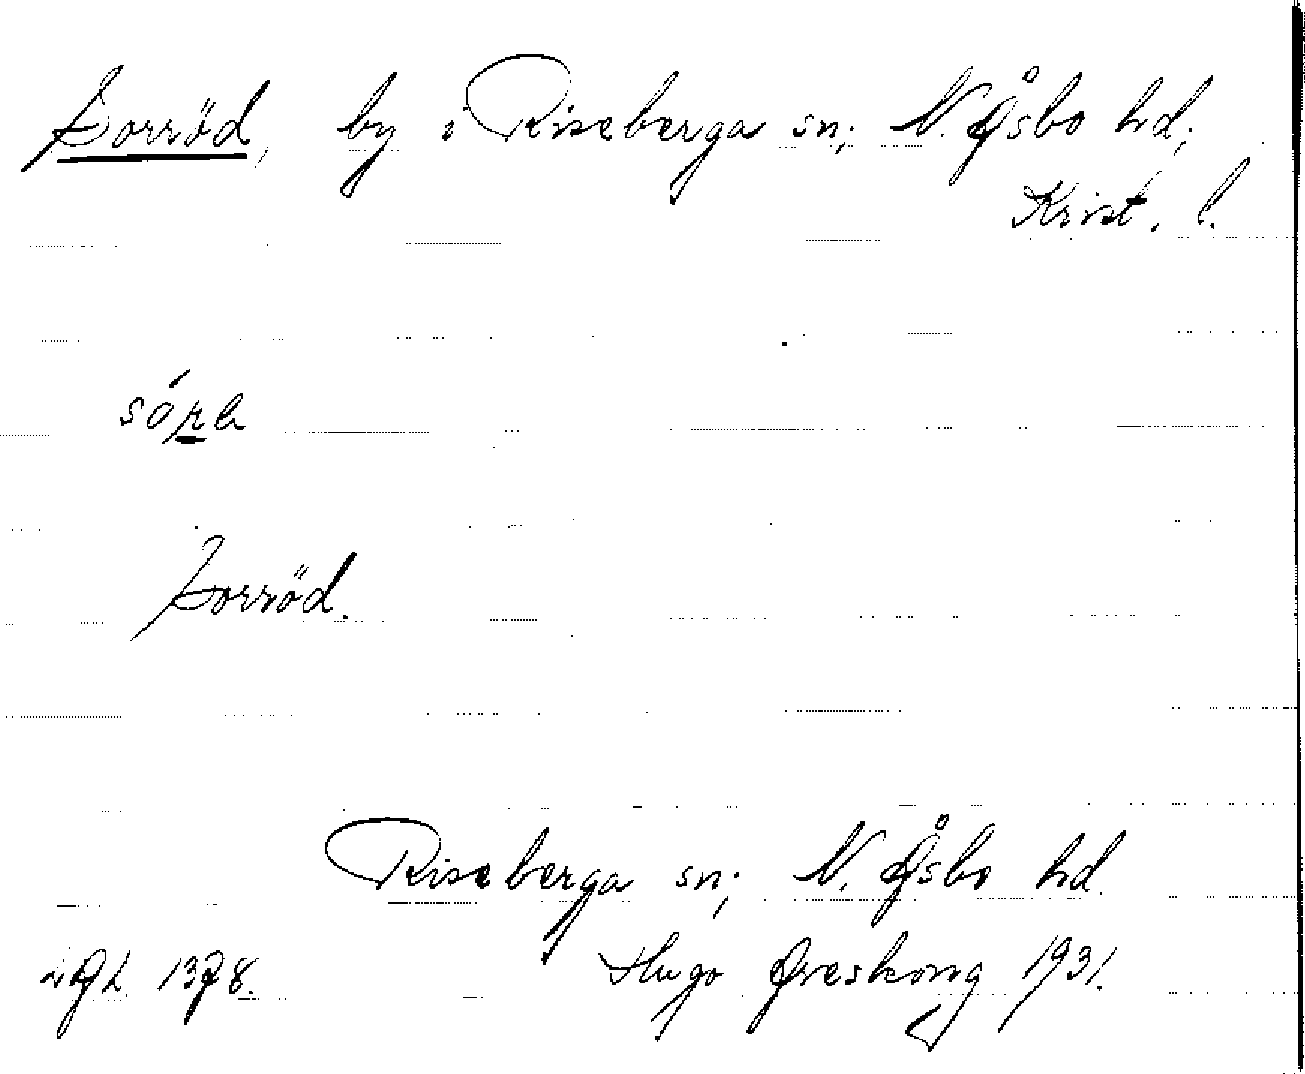 Sorröd, by i Riseberga sn; N. Åsbo hd;
Krist. l.
Sorröd.
Riseberga sn; N. Åsbo hd.
Hugo Areskoug 1931.